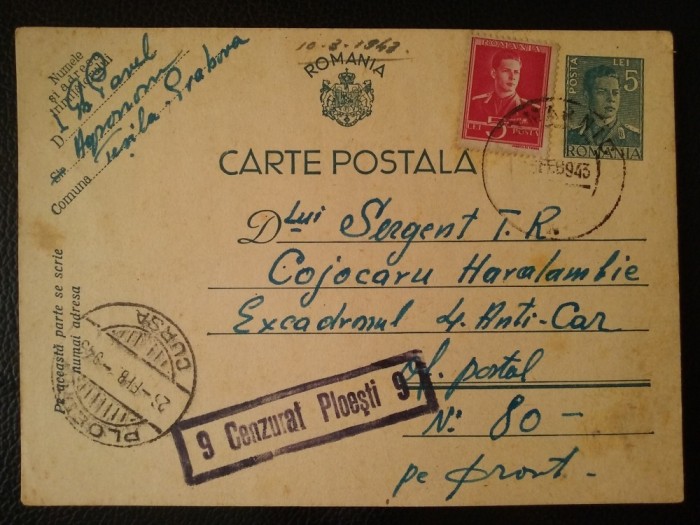 10-3-1943
ROMANIA
CARTE POSTALA
Numele
și adresa
D.
Pavel
Str.
Agronom
Comuna
Prahova
ROMANIA
LEI 5 POSTA
POSTA LEI 5
ROMANIA
FEB 943
Dlui Sergent T.R.
Cojocaru Haralambie
Excadronul 4. Anti-Car
of. postal
No. 80 -
pe front -
Pe această parte se scrie
numai adresa
PLOEȘTI
FEB. 943
CURSA
9 Cenzurat Ploești 9